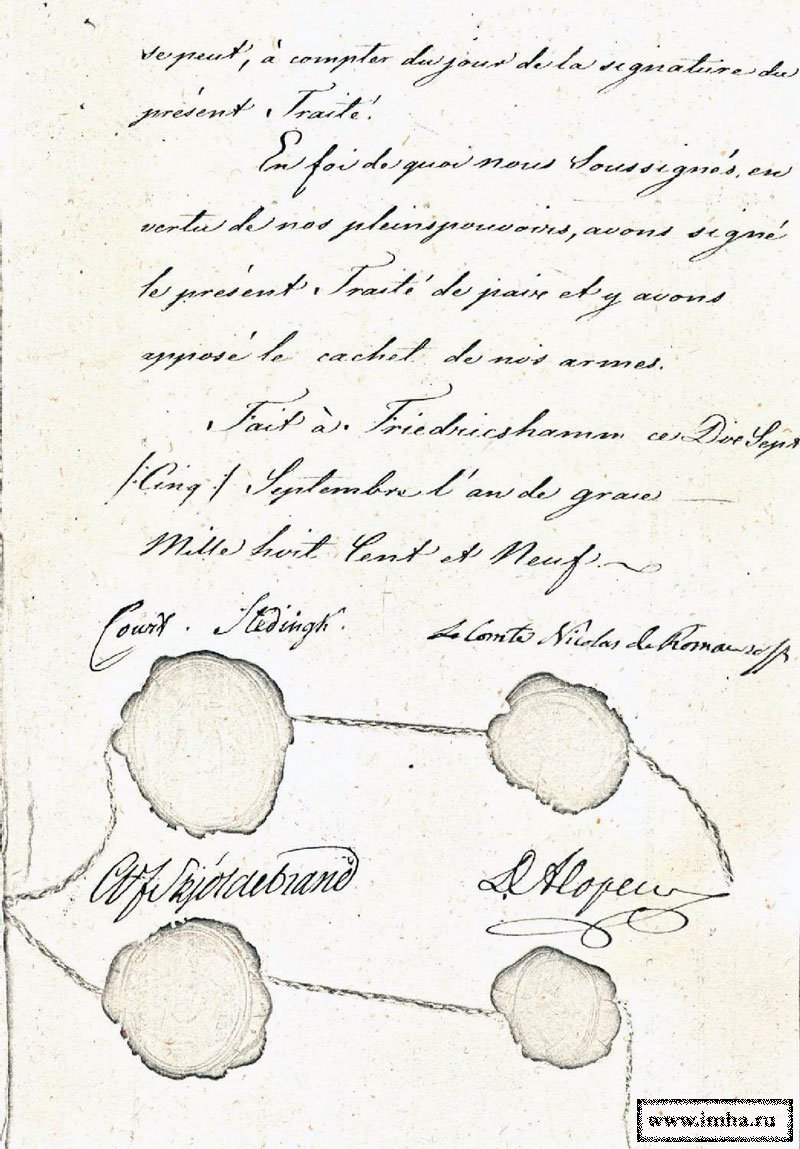 se peut, à compter du jour de la signature du
présent Traité.
En foi de quoi nous Soussignés, en
vertu de nos pleinspouvoirs, avons signé
le présent Traité de paix et y avons
apposé le cachet de nos armes.
Fait à Friedricshamm ce Dix Sept
/:Cinq:/ Septembre l'an de grace
Mille huit Cent et Neuf.
Court. Stedingk.
Le Comte Nicolas de Romanzoff
Skjöldebrand
D. Alopeus
www.imha.ru